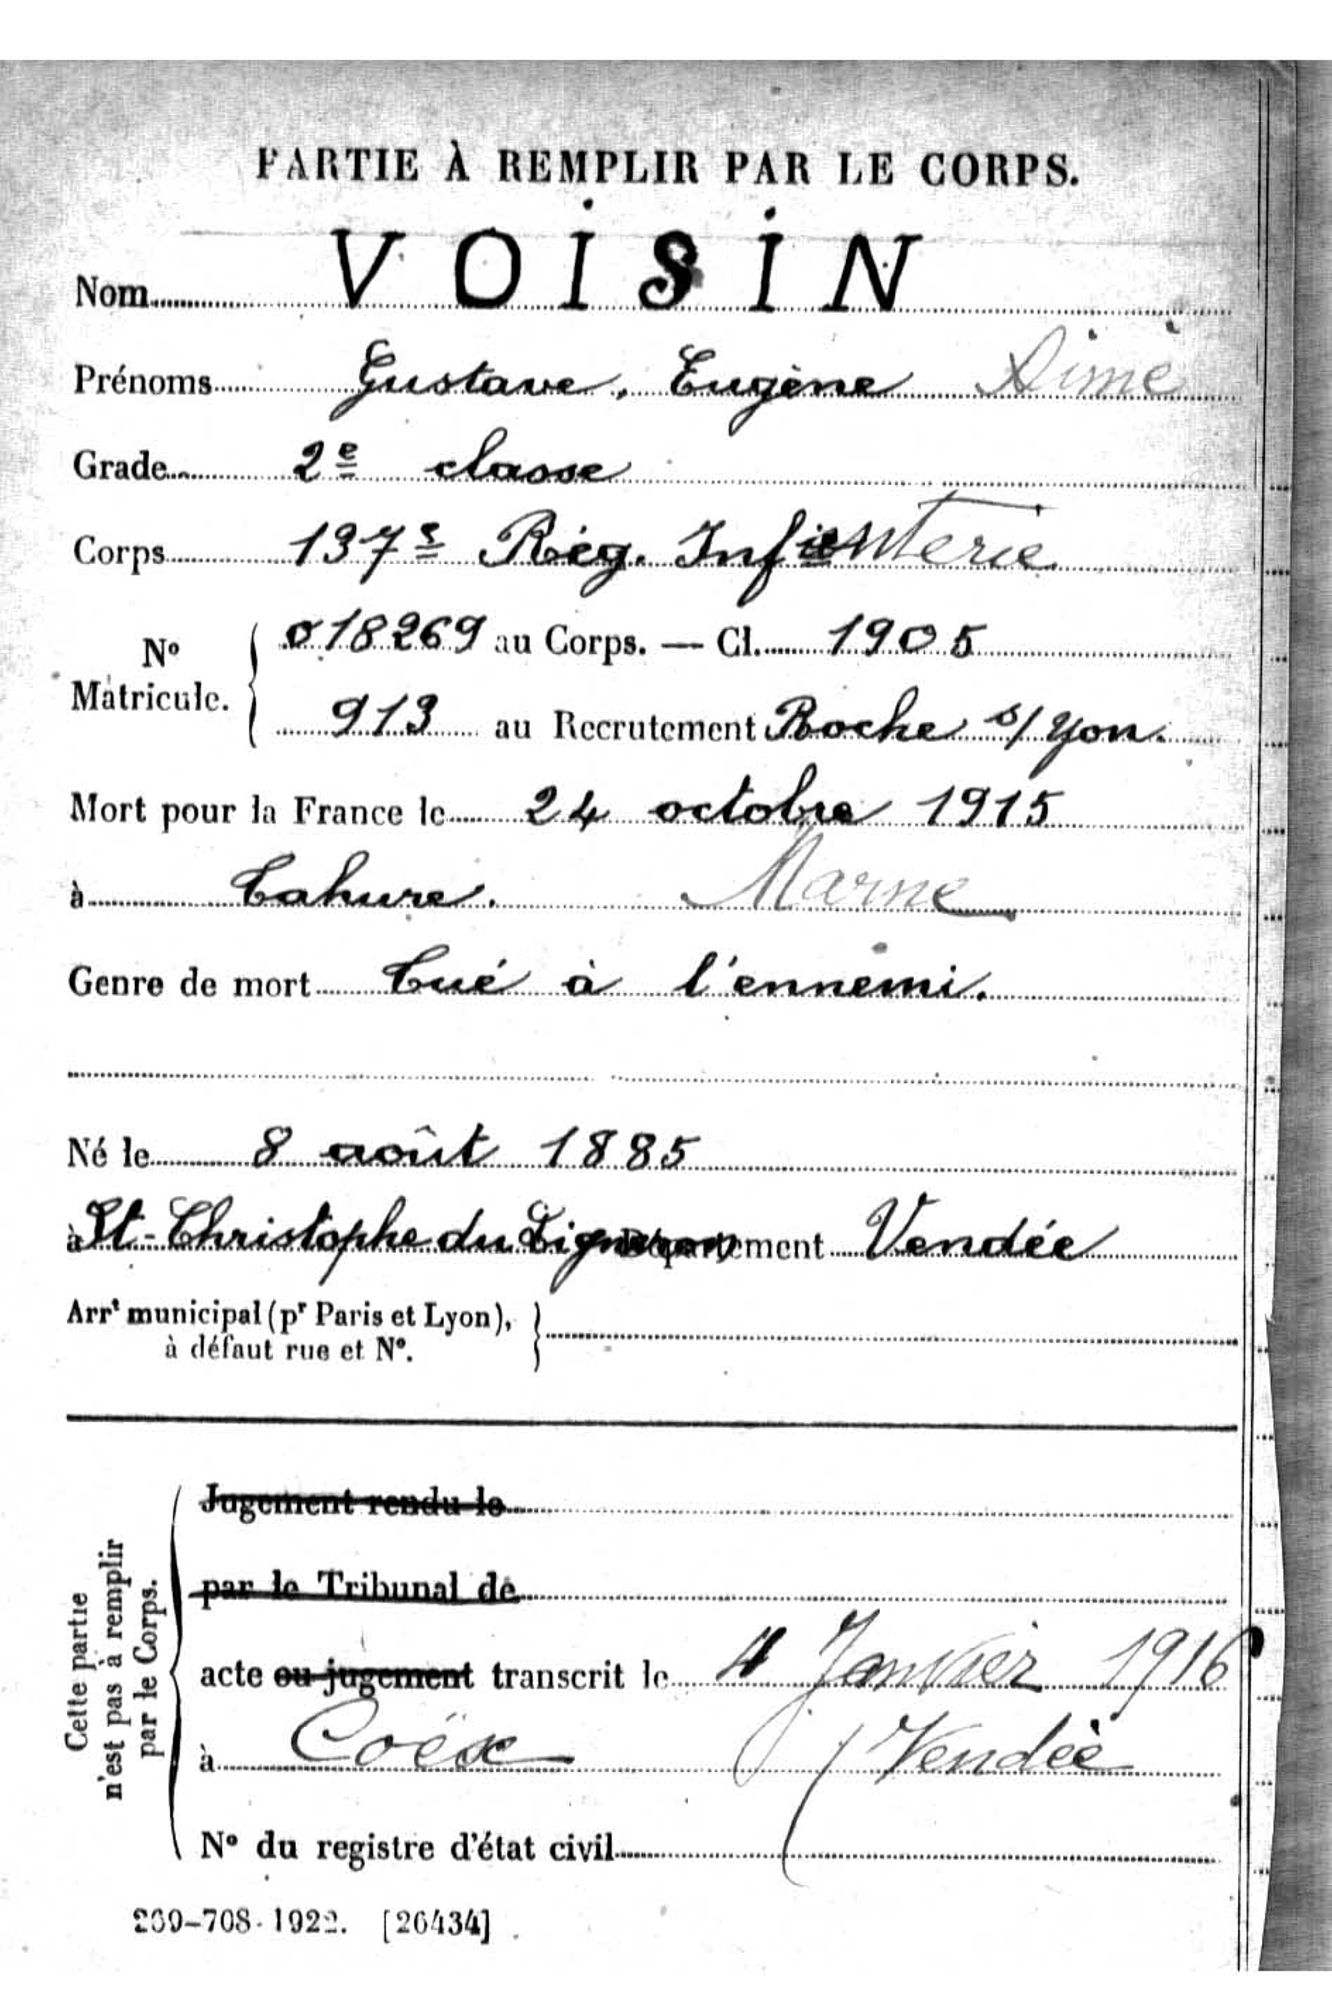 PARTIE À REMPLIR PAR LE CORPS.
Nom VOISIN
Prénoms Gustave, Eugène Aimé
Grade 2e classe
Corps 137e Rég. Infanterie
No Matricule. { 018269 au Corps. — Cl. 1905
913 au Recrutement Roche s/ Yon.
Mort pour la France le 24 octobre 1915
à Tahure. Marne
Genre de mort Tué à l'ennemi.
Né le 8 août 1885
à St-Christophe du Ligneron Département Vendée
Arrt municipal (pr Paris et Lyon), }
à défaut rue et No.
Cette partie n'est pas à remplir par le Corps.
Jugement rendu le
par le Tribunal de
acte ou jugement transcrit le 4 Janvier 1916
à Coëx (Vendée
No du registre d'état civil
269-708-1922. [26434]